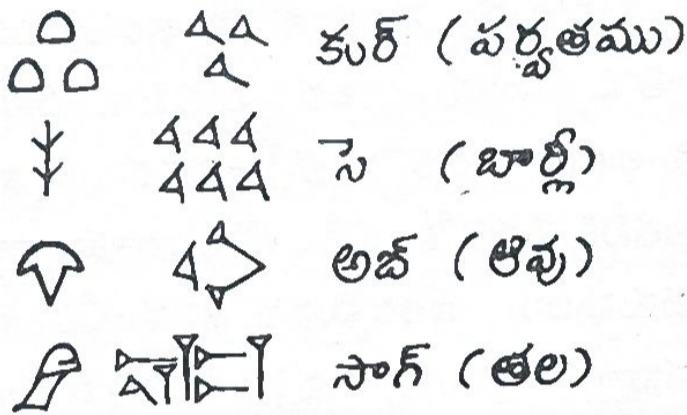 కుర్ (పర్వతము)
సె (బార్లీ)
అబ్ (ఆవు)
సాగ్ (తల)